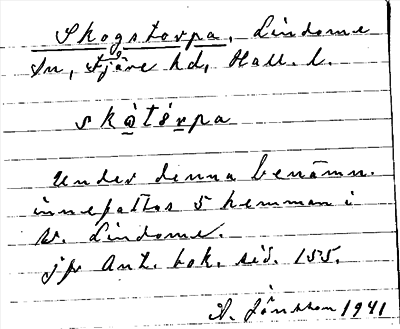 Skogstorpa, Lindome
sn, Fjäre hd, Hall. l.
skàtórpa
Under denna benämn.
innefattas 5 hemman i
v. Lindome.
jfr Ant. bok. sid. 155.
A. Jönsson 1941